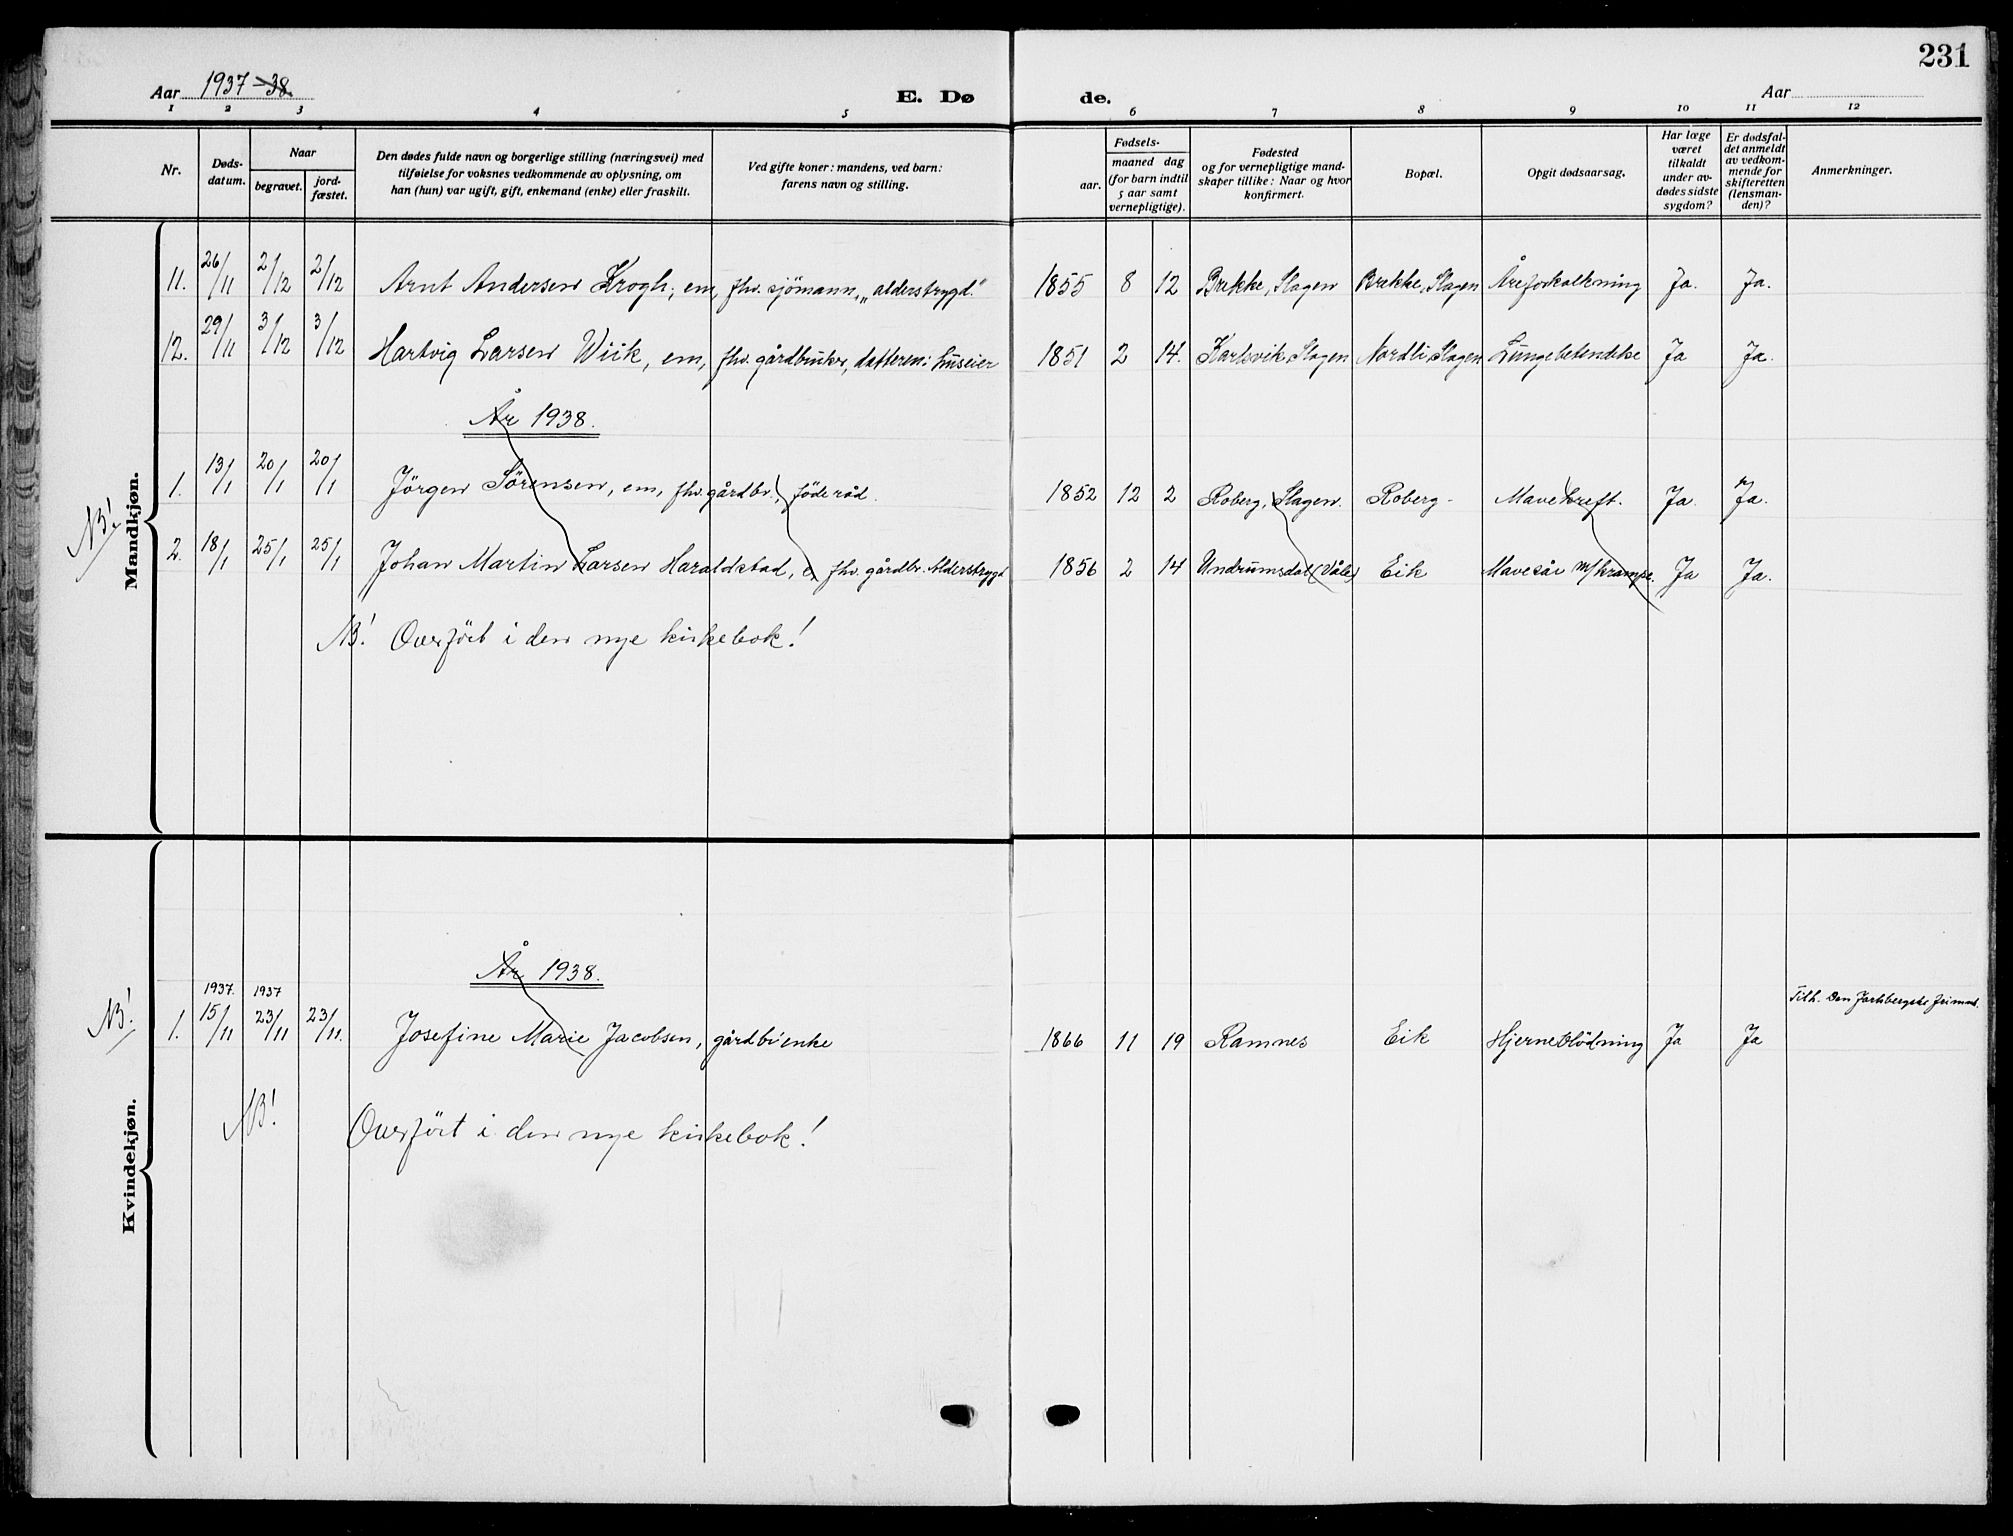 231
Aar 1937-38.
E. Dø
de.
Aar
1 2 3 4 5 6 7 8 9 10 11 12
Nr.
Døds-
datum.
Naar
begravet.
jord-
fæstet.
Den dødes fulde navn og borgerlige stilling (næringsvei) med
tilføielse for voksnes vedkommende av oplysning, om
han (hun) var ugift, gift, enkemand (enke) eller fraskilt.
Ved gifte koner: mandens, ved barn:
farens navn og stilling.
Fødsels-
aar.
maaned dag
(for barn indtil
5 aar samt
vernepligtige).
Fødested
og for vernepligtige mand-
skaper tillike: Naar og hvor
konfirmert.
Bopæl.
Opgit dødsaarsag.
Har læge
været
tilkaldt
under av-
dødes sidste
sygdom?
Er dødsfal-
det anmeldt
av vedkom-
mende for
skifteretten
(lensman-
den)?
Anmerkninger.
Mandkjøn.
11. 26/11 2/12 2/12 Arnt Andersen Krogh, em, fhv. sjömann, "alderstrygd." 1855 8 12 Brekke, Slagen Brekke, Slagen Åreforkalkning Ja. Ja.
12. 29/11 3/12 3/12 Hartvig Larsen Wiik, em, fhv. gårdbruker, datteren: huseier 1851 2 14. Karlsvik, Slagen Nordli Slagen Lungebetendelse Ja Ja.
År 1938.
NB!
1. 13/1 20/1 20/1 Jörgen Sørensen, em, fhv. gårdbr., föderåd. 1852 12 2 Roberg, Slagen. Roberg- Mavekreft. Ja. Ja.
2. 18/1 25/1 25/1 Johan Martin Larsen Haraldstad, e, fhv. gårdbr. Alderstrygd 1856 2 14 Undrumsdal (Våle) Eik Mavesår m/krampe. Ja Ja.
NB! Overfört i den nye kirkebok!
Kvindekjøn.
År 1938.
NB!
1937. 1937
Tilh. Den Jarlsbergske frimen.
1. 15/11 23/11 23/11. Josefine Marie Jacobsen, gårdbr.enke 1866 11 19 Ramnes Eik Hjerneblödning Ja Ja
NB! Overfört i den nye kirkebok!